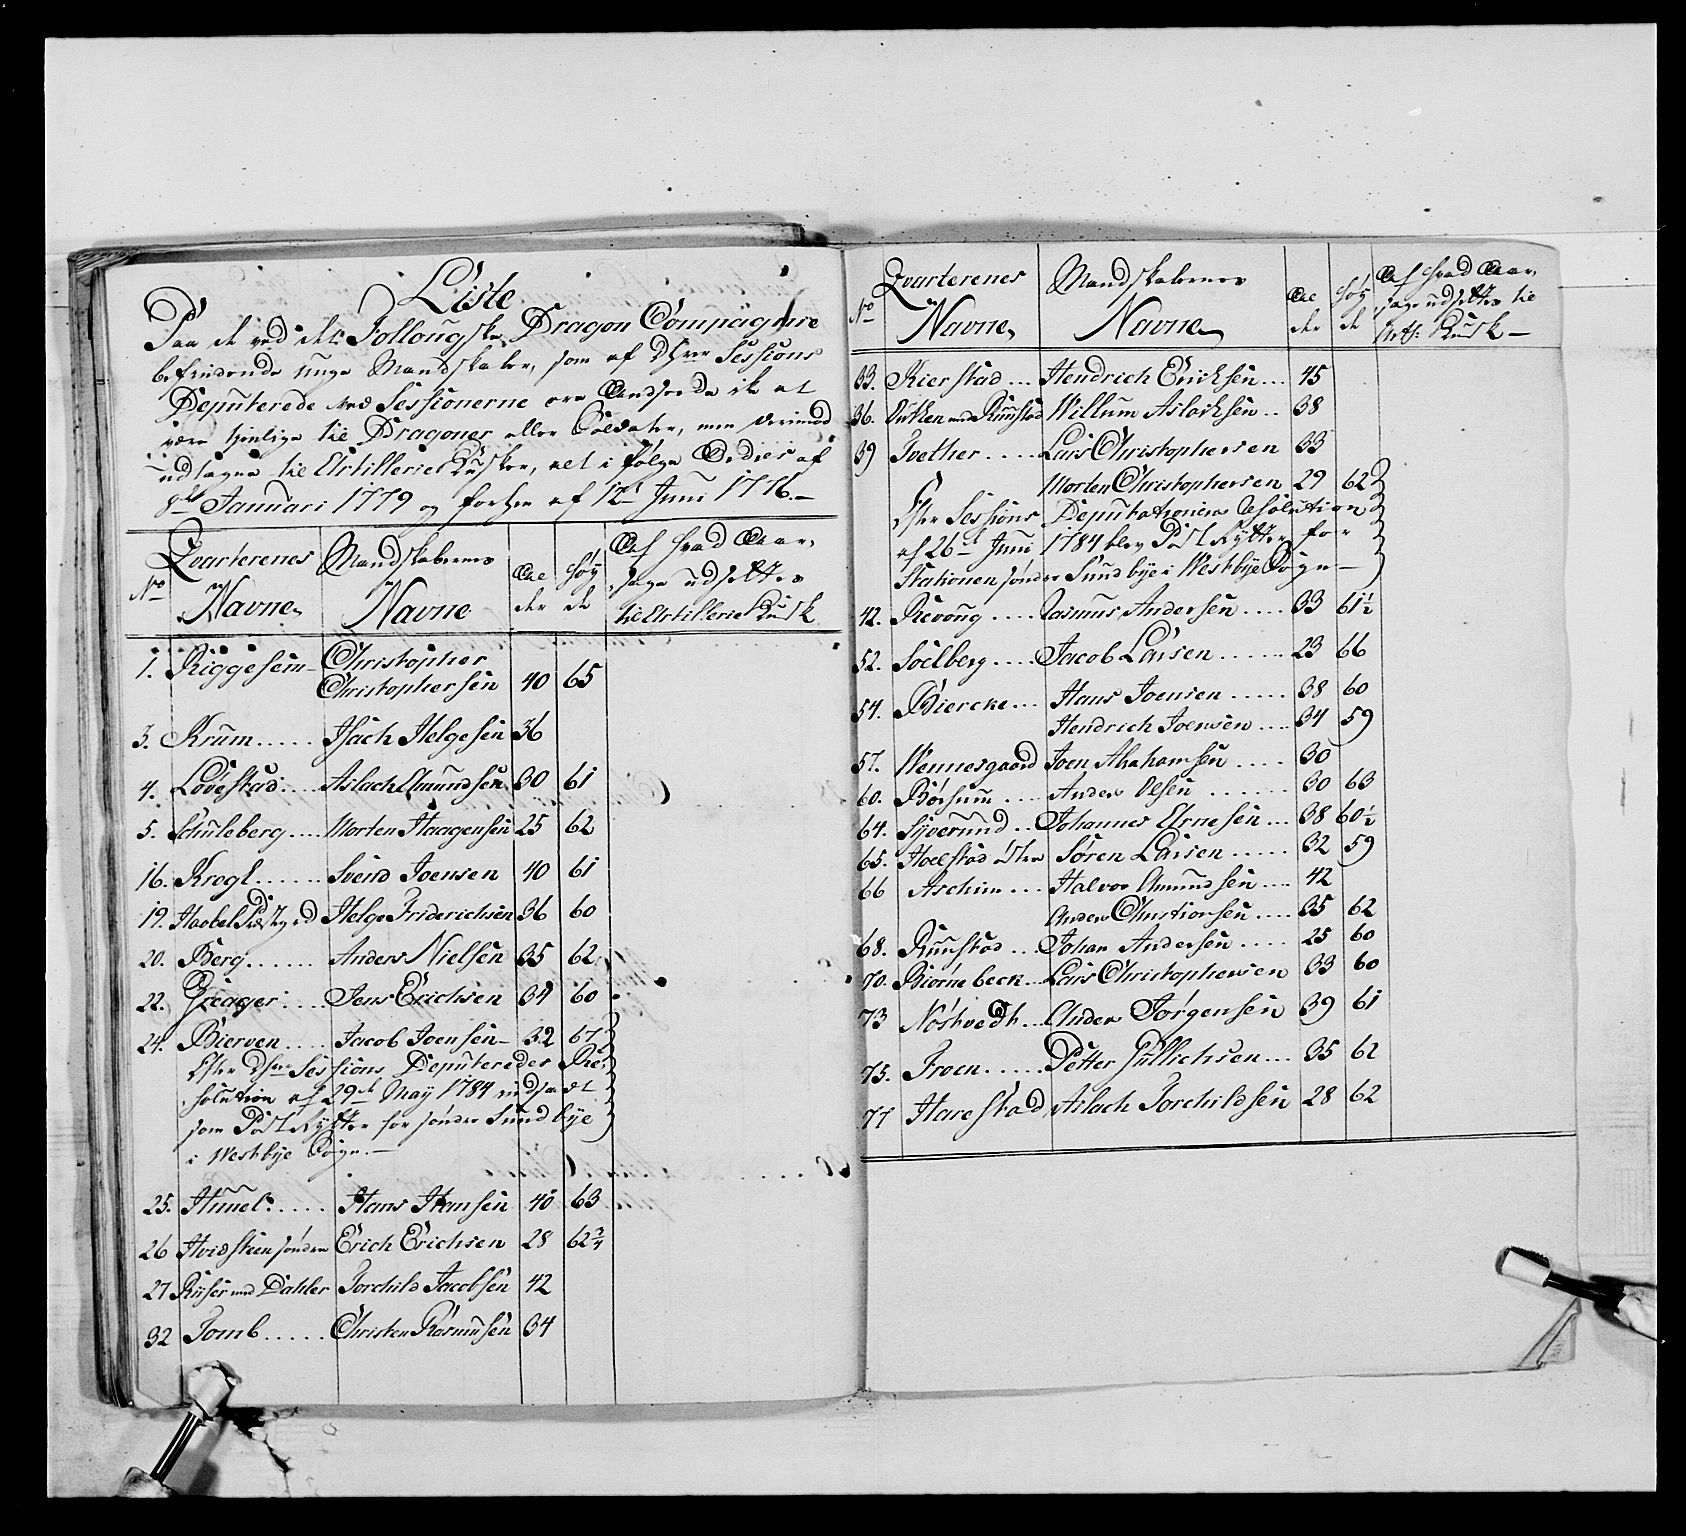 Liste
Paa de ved det Follougske Dragon Compagnie
befindende unge Mandskaber, som af Sessions
Deputerede ved Sessionerne ere ansede ik at
være tienlige til Dragoner eller Soldater, men derimod
udtagne til Artillerie Kuske, alt i følge Ordres af
8de Januari 1779 og forhen af 12t Juni 1776.
No Qvarterenes Navne Mandskabernes Navne Al der Høy de Af hvad Aar, sage udsettes til Artillerie Kusk
1. Riggesem Christopher
Christophersen 40 65
3. Krum ..... Isach Helgesen 36
4. Lødestad .... Aslach Amundsen 30 61
5. Schuleberg .... Morten Haagensen 25 62
16. Krogl ...... Svend Joensen 40 61
19. Haabel Helge Friderichsen 36 60
20. Berg ...... Anders Nielsen 35 62
22. Greager .... Jens Erichsen 34 60
24. Bierven .... Jacob Joensen 32 67
Efter Sessions Deputeredes Re,
solution af 29de May 1784 udsadt
som Post Rytter for søndre Sundbye
i Westbye Sogn.
25. Huuel ..... Hans Hansen 40 63
26 Hvidsteen søndre Erich Erichsen 28 62 3/4
27 Riiser med Dahler Torchild Jacobsen 42
32 Tomb ..... Christen Rasmusen 34
No Qvarterenes Navne Mandskabernes Navne Al der Høy de Af hvad Aar, sage udsettes til Art: Kusk
33. Kierstad ... Hendrich Ericksen ... 45
36. med Ruustad Willum Aslacksen .. 38
39 Tvether ..... Lars Christophersen 33
Morten Christophersen 29 62
Efter Sessions Deputationens Resolution
af 26de Juni 1784 blev Post Rytter for
Stationen søndre Sundbye i Westbye Sogn
42. Revoug .... Rasmus Andersen .... 33 61 1/2
52. Soelberg .... Jacob Larsen ...... 23 66
54. Biercke ... Hans Joensen ...... 38 60
Hendrich Joensen .... 34 59
57. Wennesgaard Joen Abrahamsen .... 30
60. Børsum .... Anders Olsen ...... 30 63
64. Syverund .. Johannes Arnesen ... 38 60 1/2
65. Hoelstad østre Søren Larsen ..... 32 59
66 Aschim ... Halvor Amundsen .... 42
Anders Christiansen .... 35 62
68. Ruustad ... Johan Andersen .... 25 60
70. Biørnebeck ... Lars Christophersen 33 60
73 Nøstvedt ... Anders Jørgensen 39 61
75. Froen ..... Petter Gullichsen ... 35 62
77 Harestad Aslach Torchildsen 28 62